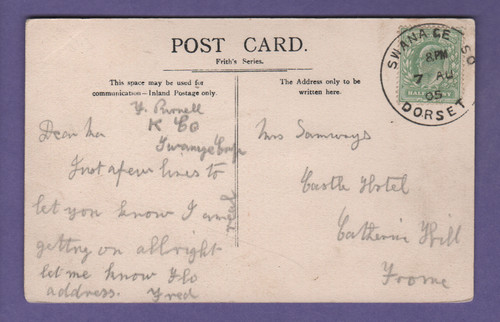 POST CARD.
Frith's Series.
This space may be used for
communication—Inland Postage only.
The Address only to be
written here.
SWANAGE S.O
8 PM
7 AU
05
DORSET
HALFPENNY
K Co
Dear Ma
Just a few lines to
let you know I am
getting on allright
let me know Flo
address. Fred
Mrs Samways
Castle Hotel
Catherine Hill
Frome